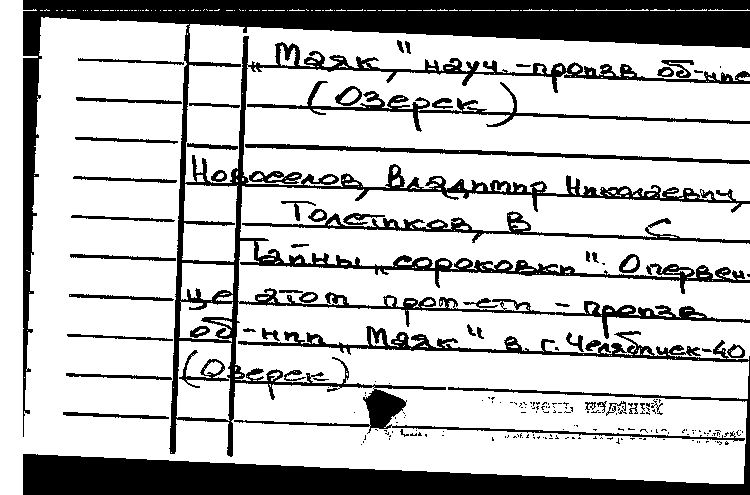 „Маяк," науч.-произв. об-ние
(Озерск)
Новоселов, Владимир Николаевич,
Толстиков, В С
Тайны „сороковки": О первен-
це атом пром-сти - произв.
об-нии „Маяк" в г. Челябинск-40
(Озерск)
Перечень изданий